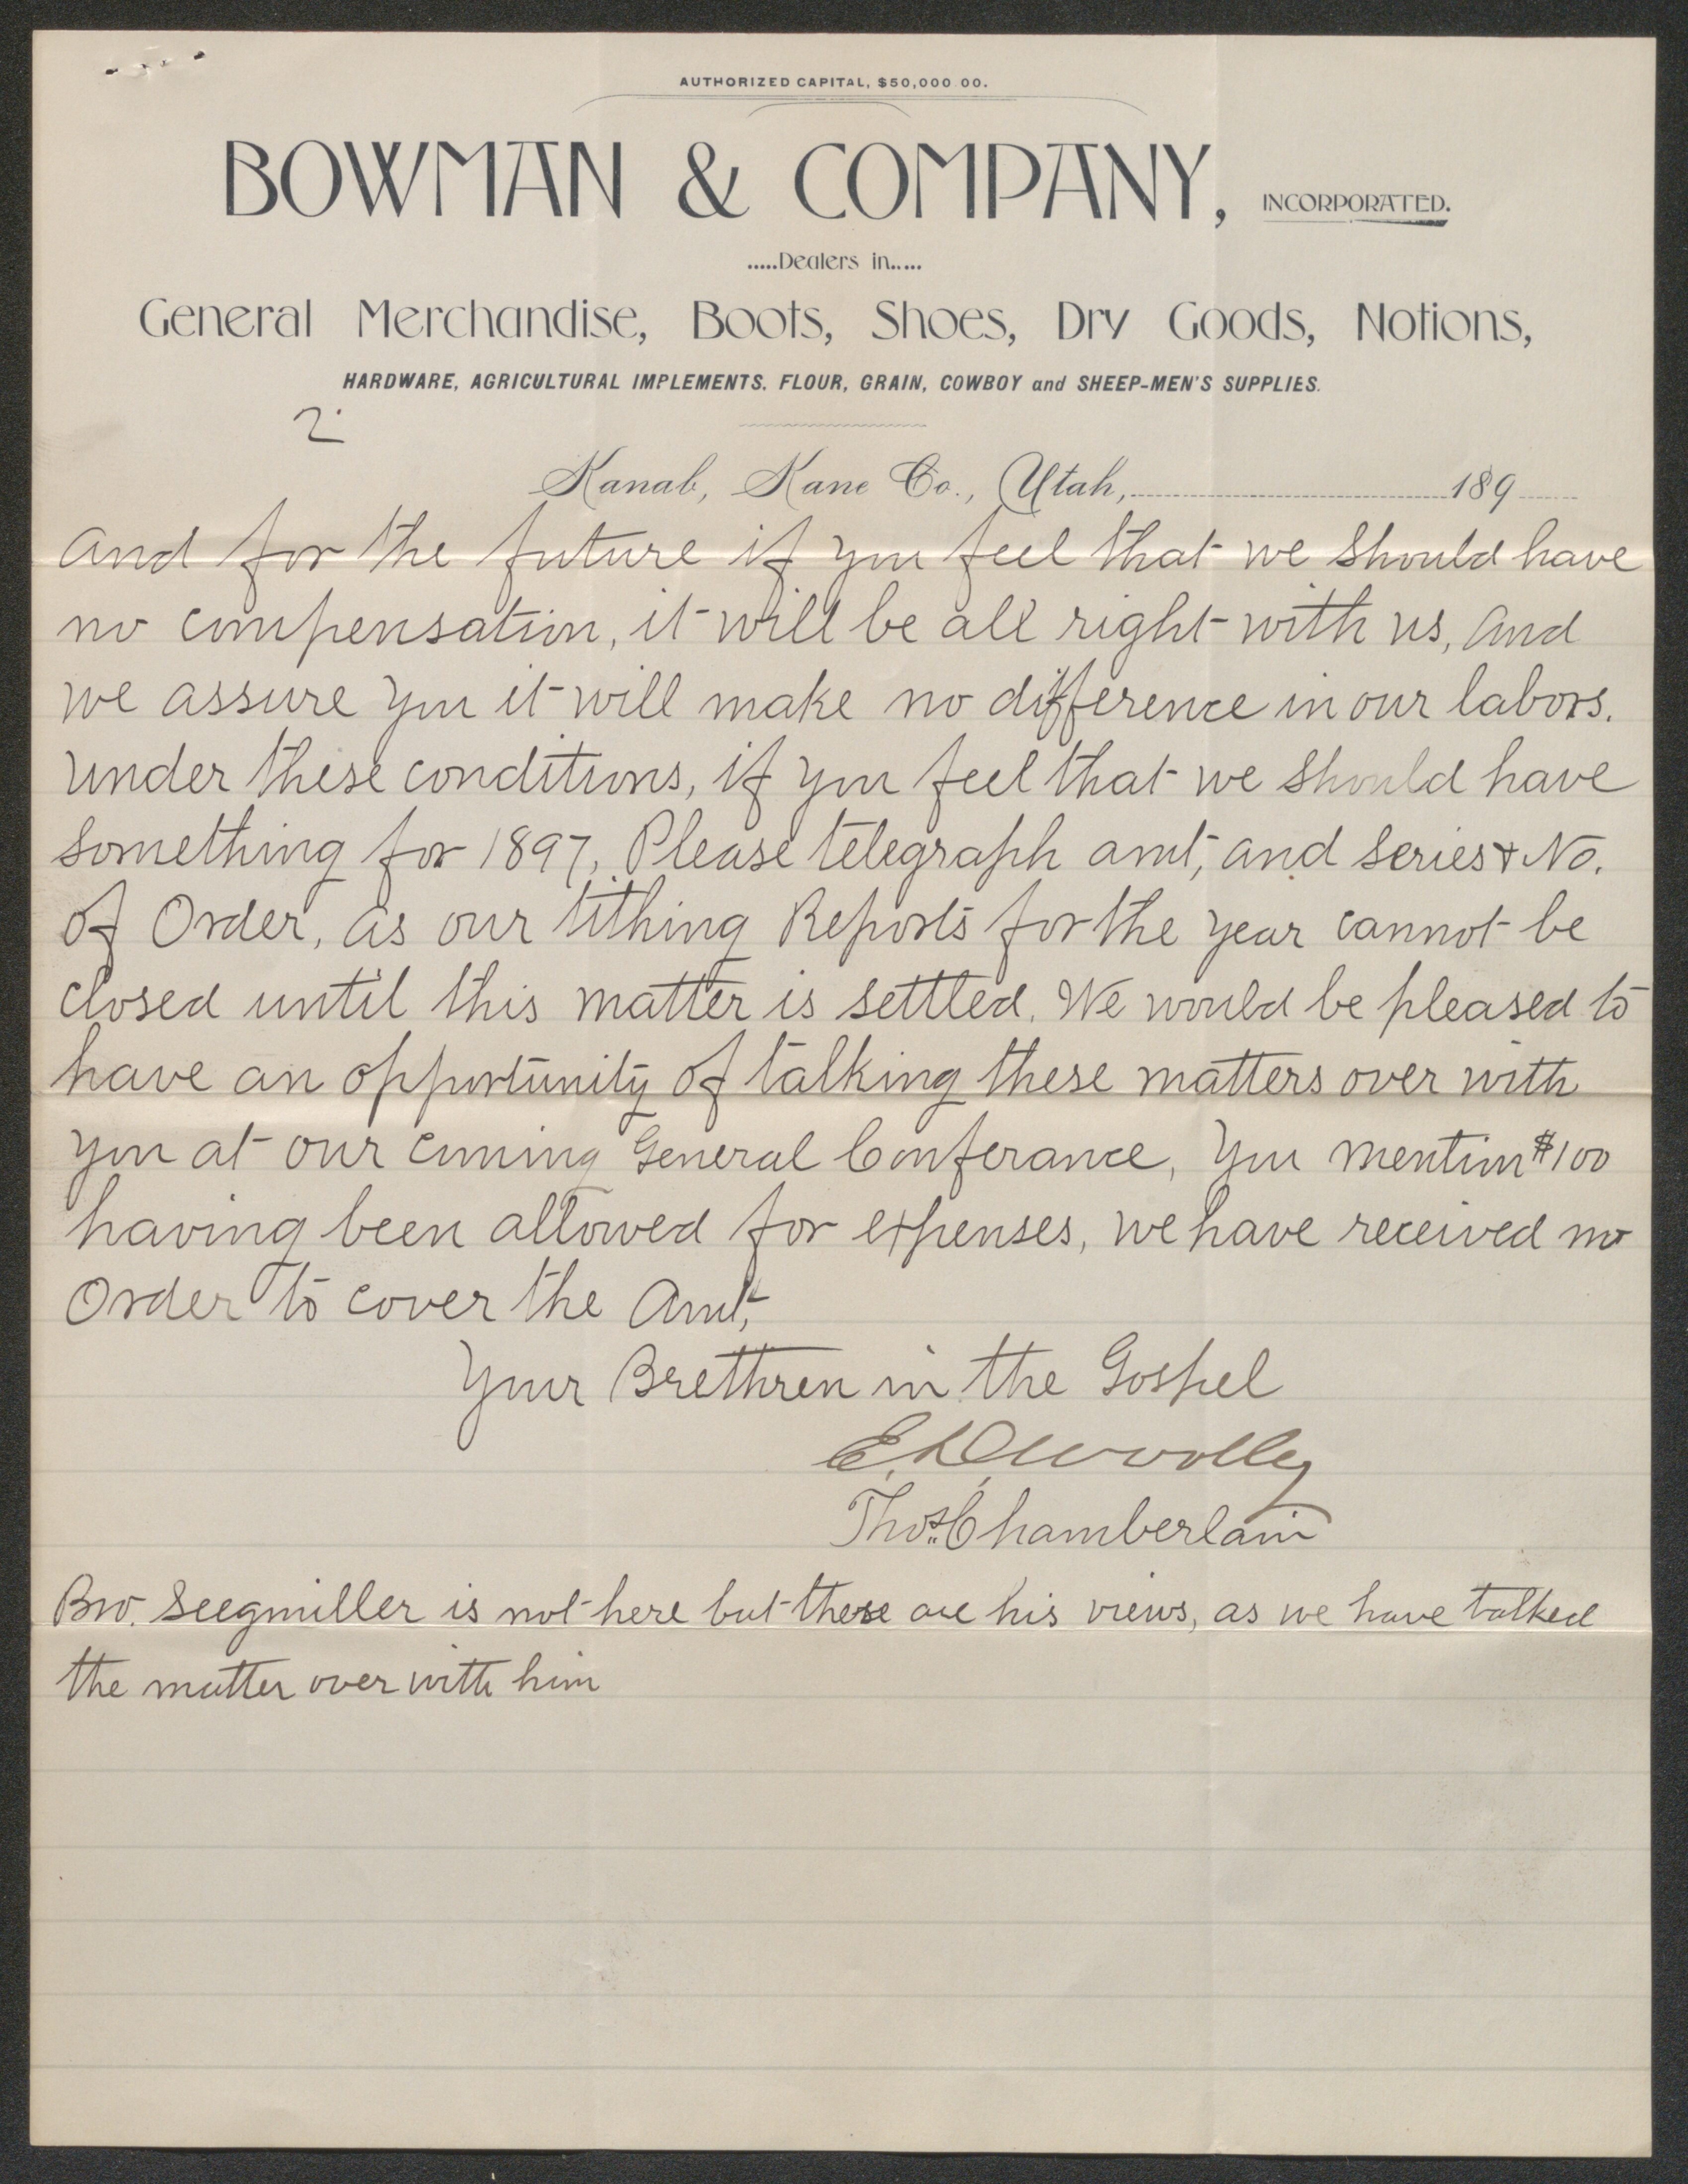 AUTHORIZED CAPITAL, $50,000.00.
BOWMAN & COMPANY, INCORPORATED.
.....Dealers in.....
General Merchandise, Boots, Shoes, Dry Goods, Notions,
HARDWARE, AGRICULTURAL IMPLEMENTS, FLOUR, GRAIN, COWBOY and SHEEP-MEN'S SUPPLIES.
2
Kanab, Kane Co., Utah, 189
and for the future if you feel that we should have
no compensation, it will be all right with us, and
we assure you it will make no difference in our labors.
under these conditions, if you feel that we should have
something for 1897, Please telegraph amt, and series & No.
of Order, as our tithing Reports for the year cannot be
closed until this matter is settled. We would be pleased to
have an opportunity of talking these matters over with
you at our cuming General Conferance, You mention $100
having been allowed for expenses, we have received no
Order to cover the Amt,
Your Brethren in the Gospel
E. D. Woolley
Thos. Chamberlain
Bro. Seegmiller is not here but these are his views, as we have talked
the matter over with him